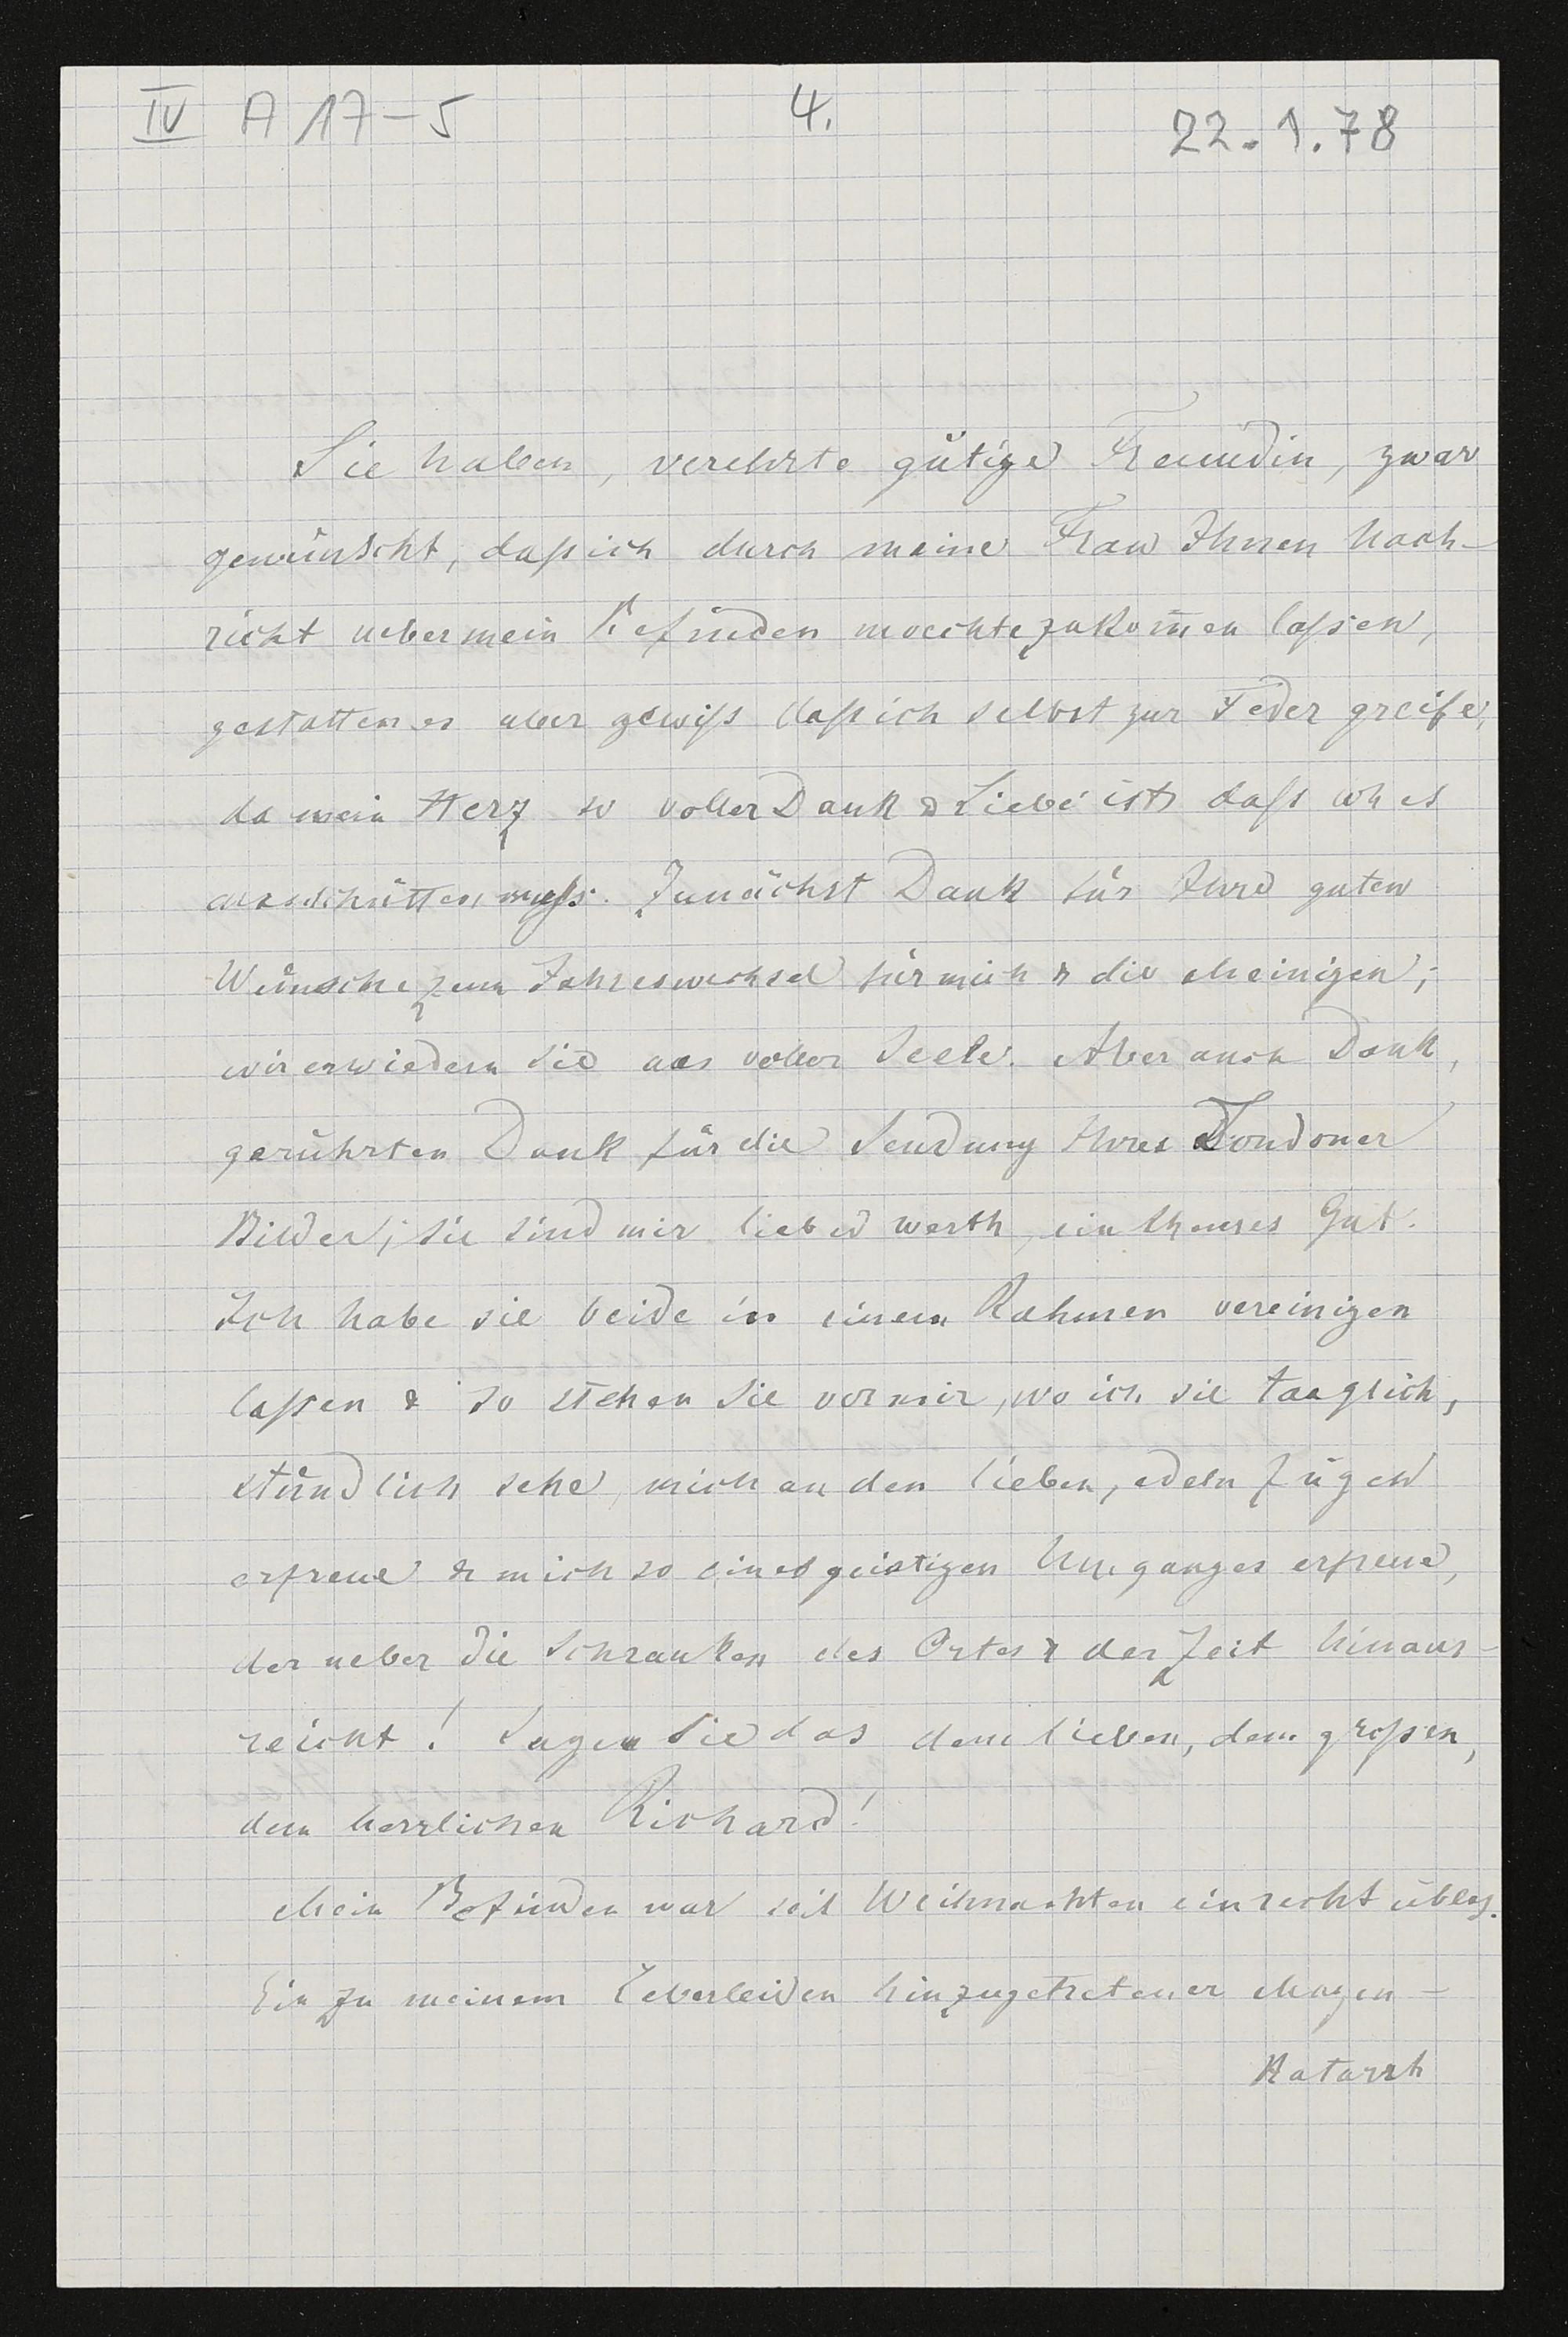 IV A 17-5 4. 22.1.78
Sie haben, verehrte gütige Freundin, zwar
gewünscht, daß ich durch meine Frau Ihnen Nach-
richt ueber mein Befinden moechte zukom̄en laßen,
gestatten es aber gewiß daß ich selbst zur Feder greife,
da mein Herz so voller Dank & Liebe ist, daß ich es
ausschütten muß. Zunächst Dank für Ihre guten
Wünsche zum Jahreswechsel für mich & die Meinigen;
wir erwiedern sie aus voller Seele. Aber auch Dank,
gerührten Dank für die Sendung Ihres Londoner
Bilder; sie sind mir lieb & werth, ein theures Gut.
Ich habe sie beide in einem Rahmen vereinigen
laßen & so stehen sie vor mir, wo ich sie taeglich,
stündlich sehe, mich an den lieben, edeln Zügen
erfreue & mich so eines geistigen Umganges erfreue,
der ueber die Schranken des Ortes & der Zeit hinaus-
reicht! Sagen Sie das dem lieben, dem großen,
dem herrlichen Richard!
Mein Befinden war seit Weihnachten ein recht übles.
Ein zu meinem Leberleiden hinzugetretener Magen-
Katarrh